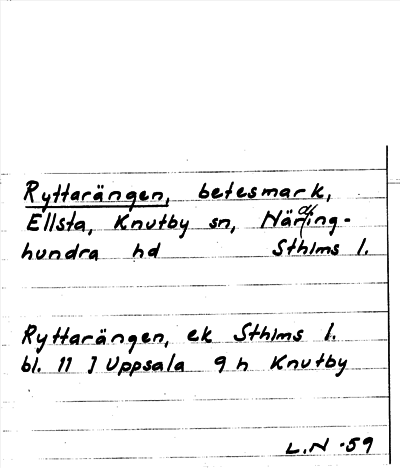 Ryttarängen, betesmark,
Ellsta, Knutby sn, Närding-
hundra hd Sthlms l.
Ryttarängen, ek Sthlms l.
bl. 11 J Uppsala 9 h Knutby
L.N -59